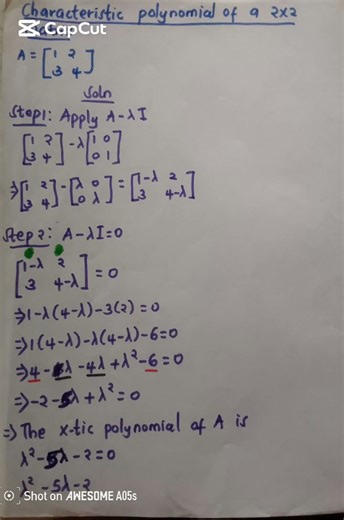 Characteristic polynomial of a 2x2
CapCut
A = [1 2
3 4]
Soln
Step1: Apply A-λI
[1 2
3 4] -λ [1 0
0 1]
⇒ [1 2
3 4] - [λ 0
0 λ] = [1-λ 2
3 4-λ]
Step 2: A-λI=0
[1-λ 2
3 4-λ] = 0
⇒1-λ(4-λ)-3(2)=0
⇒1(4-λ)-λ(4-λ)-6=0
⇒4-λ-4λ+λ²-6=0
⇒-2-5λ+λ²=0
⇒ The x-tic polynomial of A is
λ²-5λ-2=0
λ²-5λ-2
Shot on AWESOME A05s